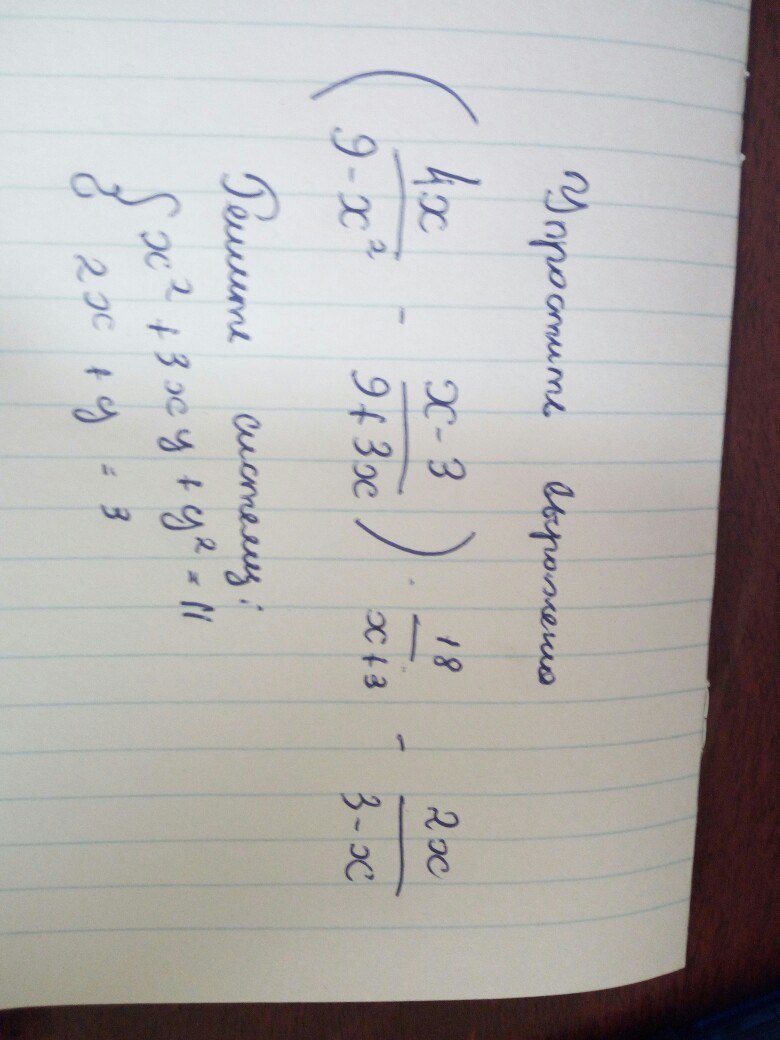 Упростите выражение
( 4x / 9 - x² - x - 3 / 9 + 3x ) · 18 / x + 3 - 2x / 3 - x
Решите систему:
{ x² + 3xy + y² = 11
2x + y = 3